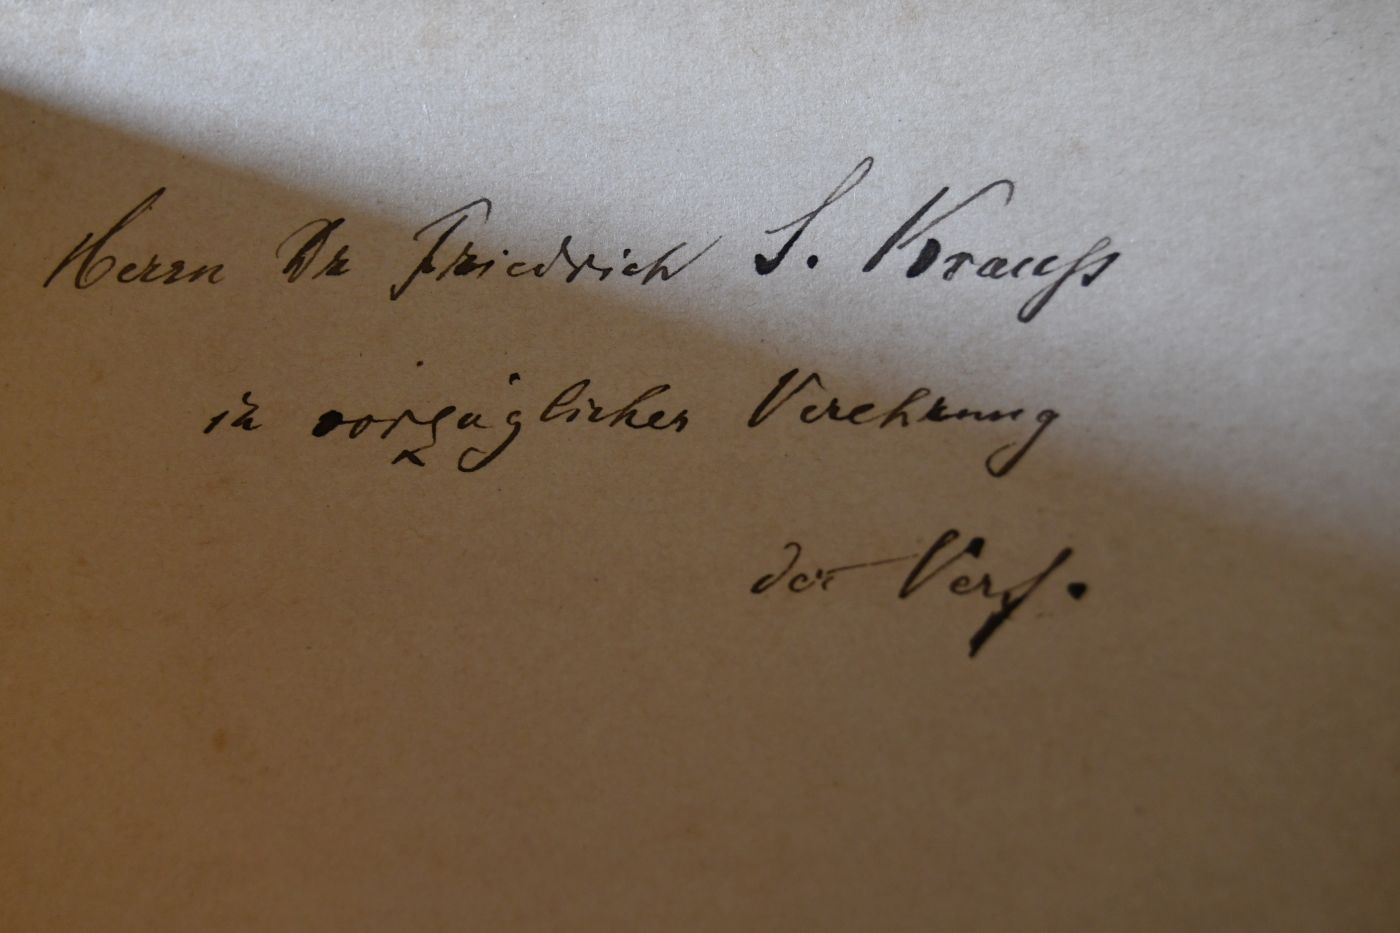 Herrn Dr Friedrich S. Krauſs
in vorzüglicher Verehrung
der Verf.